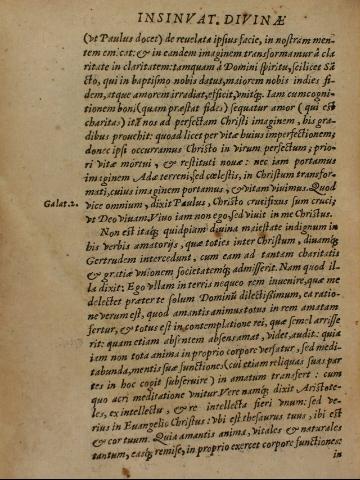 INSINVAT. DIVINÆ
(vt Paulus docet) de reuelata ipsius facie, in nostram men-
tem emicat: & in eandem imaginem transformamur à cla
ritate in claritatem: tamquam à Domini spiritu, scilicet Sā
cto, qui in baptismo nobis datus, maiorem nobis indies fi-
dem, atque amorem irradiat, efficit, vnitq́. Iam cum cogni-
tionem boni (quam præstat fides) sequatur amor (qui est
charitas) ità nos ad perfectam Christi imaginem, his gra-
dibus prouehit: quoad licet per vitæ huius imperfectionem;
donec ipsi occurramus Christo in virum perfectum; prio-
ri vitæ mortui, & restituti nouæ: nec iam portamus
imaginem Adæ terreni, sed cœlestis, in Christum transfor-
mati, cuius imaginem portamus, & vitam viuimus. Quod
Galat. 2.
vice omnium, dixit Paulus, Christo crucifixus sum cruci,
vt Deo viuam. Viuo iam non ego, sed viuit in me Christus.
Non est itaq́; quidpiam diuina maiestate indignum in
his verbis amatorijs, quæ toties inter Christum, diuamq́;
Gertrudem intercedunt, cum eam ad tantam charitatis
& gratiæ vnionem societatemq́; admisserit. Nam quod il-
la dixit: Ego vllam in terris nequeo rem inuenire, quæ me
delectet præter te solum Dominū dilectissimum, ea ratio-
ne verum est, quod amantis animus totus in rem amatam
fertur, & totus est in contemplatione rei, quæ semel arrisse
rit: quam etiam absentem absens amat, videt, audit: quia
iam non tota anima in proprio corpore versatur, sed medi-
tabunda, mentis suæ functiones (cui etiam reliquas suas par
tes in hoc cogit subseruire) in amatum transfert: cum
quo acri meditatione vnitur. Vere namq́; dixit Aristote-
les, ex intellectu, & re intellecta fieri vnum: sed ve-
rius in Euangelio Christus: vbi est thesaurus tuus, ibi est
& cor tuum. Quia amantis anima, vitales & naturales
tantum, easq́; remisè, in proprio exercet corpore functiones:
in